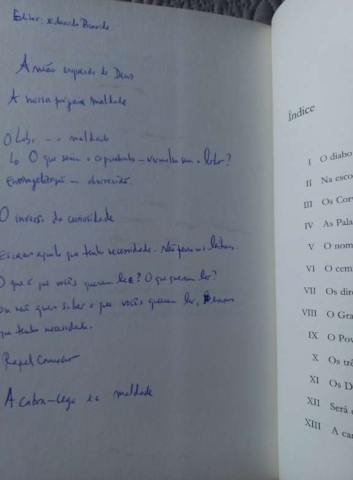 Editor: Eduardo
A mão esquerda de Deus
A nossa própria maldade
O Lobo --- maldade
↳ O que seria o capuchinho-vermelho sem o lobo?
Evangelização - obsessão
O inverso da curiosidade
Escrever aquilo que tenho necessidade. Não penso no leitor.
O que é que vocês querem ler? O que querem ler?
não quer saber o que vocês querem ler,
que tenho necessidade.
Rapel
A cabra-cega e a maldade
Índice
I O diabo
II Na esco
III Os Cor
IV As Pala
V O nom
VI O cem
VII Os dir
VIII O Gra
IX O Pov
X Os trê
XI Os D
XII Será
XIII A ca